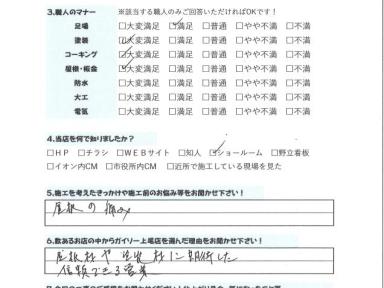 3.職人のマナー ※該当する職人のみご回答いただければOKです！
足場 □大変満足 ☑満足 □普通 □やや不満 □不満
塗装 ☑大変満足 □満足 □普通 □やや不満 □不満
コーキング ☑大変満足 □満足 □普通 □やや不満 □不満
屋根・板金 ☑大変満足 □満足 □普通 □やや不満 □不満
防水 □大変満足 □満足 □普通 □やや不満 □不満
大工 □大変満足 □満足 □普通 □やや不満 □不満
電気 □大変満足 □満足 □普通 □やや不満 □不満
4.当店を何で知りましたか？
□ＨＰ □チラシ □ＷＥＢサイト □知人 ☑ショールーム □野立看板
□イオン内CM □市役所内CM □近所で施工している現場を見た
5.施工を考えたきっかけや施工前のお悩み等をお聞かせ下さい！
屋根の痛み
6.数あるお店の中からガイソー上尾店を選んだ理由をお聞かせ下さい！
屋根材や塗装材に期待した
信頼できる営業